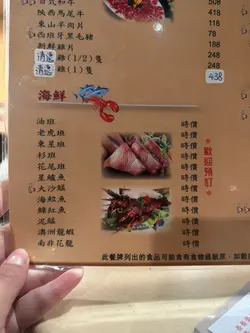 日式和牛
陝西馬尾牛 508
東山羊肉片 248
西班牙黑毛豬 208
新鮮雞片 208
清遠雞(1/2)隻 248
清遠雞(1)隻 438
海鮮
油班 時價
老虎班 時價
東星班 時價
杉班 時價
花尾班 時價
星鱸魚 時價
大沙鯭 時價
海鯰魚 時價
鱲紅魚 時價
泥鯭 時價
澳洲龍蝦 時價
南非花龍 時價
歡迎預訂
此餐牌列出的食品可能含有食物過敏原,如